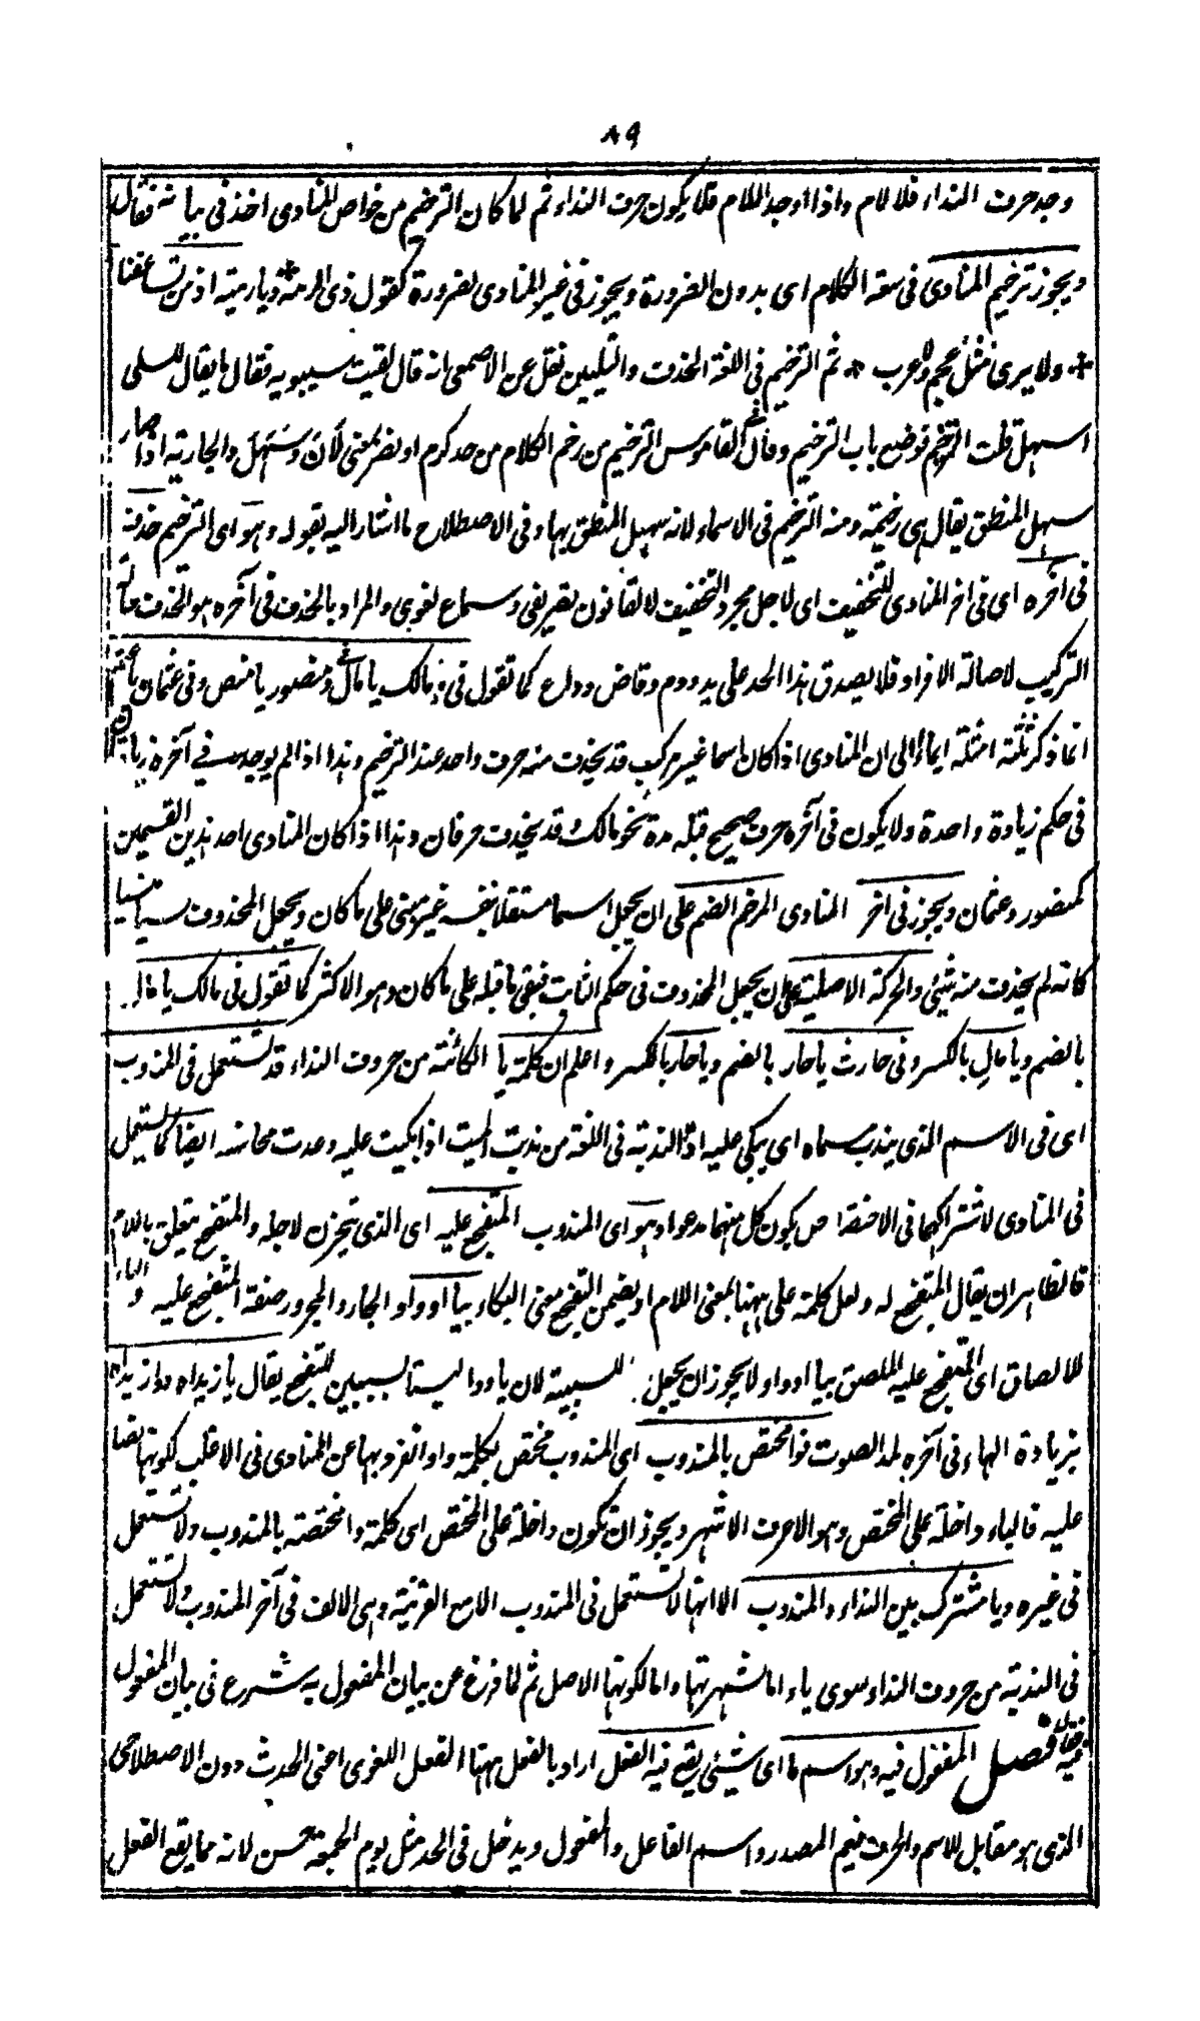 ٨٩
وجد حرف النداء فلا لام واذا وجد اللام فلا يكون حرف النداء ثم لما كان الترخيم من خواص المنادى اخذ فى بيانه فقال
ويجوز ترخيم المنادى فى سعة الكلام اى بدون الضرورة ويجوز فى غير المنادى لضرورة كقول ذى الرمة * ديار مية اذ مى تساعفنا
* ولا يرى مثلها عجم ولا عرب * ثم الترخيم فى اللغة الحذف والتليين نقل عن الاصمعى انه قال لقيت سيبويه فقال ما يقال للسلى
اسهل قلت الترخيم فوضع باب الترخيم وقال فى القاموس الترخيم من رخم الكلام من حد كرم او نصر بمعنى لان وسهل والجارية اذا صار
سهل المنطق يقال هى رخيمة ومنه الترخيم فى الاسماء لانه سهيل المنطق بها وفى الاصطلاح ما اشار اليه بقوله وهو اى الترخيم حذف
فى آخره اى فى اخر المنادى للتخفيف اى لاجل مجرد التخفيف لا لقانون تصريفى وسماع لغوى والمراد بالحذف فى آخره هو الحذف حالة
التركيب لاصالة الافراد فلا يصدق هذا الحد على يد ودم وقاض وداع كما تقول فى مالك يا مال وفى منصور يا منص وفى عثمان يا عثم
انما ذكر ثلثة امثلة ايماء الى ان المنادى اذا كان اسما غير مركب قد يحذف منه حرف واحد عند الترخيم وهذا اذا لم يوجد فى آخره زيادتان
فى حكم زيادة واحدة ولا يكون فى آخره حرف صحيح قبله مدة نحو مالك وقد يحذف حرفان وهذا اذا كان المنادى احد هذين القسمين
كمنصور وعثمان ويجوز فى اخر المنادى المرخم الضم على ان يجعل اسما مستقلا بنفسه غير مبنى على ما كان ويجعل المحذوف نسيا منسيا
كانه لم يحذف منه شيئ والحركة الاصلية على ان يجعل المحذوف فى حكم الثابت فبقى ما قبله على ما كان وهو الاكثر كما تقول فى مالك يا مال
بالضم ويا مالِ بالكسر وفى حارث يا حار بالضم ويا حار بالكسر واعلم ان كلمة يا الكائنة من حروف النداء قد تستعمل فى المندوب
اى فى الاسم الذى يندب مسماه اى يبكى عليه اذ الندبة فى اللغة من ندبت الميت اذا بكيت عليه وعدت محاسنه ايضا كما تستعمل
فى المنادى لاشتراكهما فى الاختصاص بكون كل منهما مدعوا وهو اى المندوب المتفجع عليه اى الذى يتحزن لاجله والمتفجع يتعلق باللام
فالظاهر ان يقال المتفجع له ولعل كلمة على ههنا بمعنى اللام او لتضمن التفجع معنى البكاء بيا او وا والجار والمجرور صفة المتفجع عليه والباء
للالصاق اى المتفجع عليه الملصق بيا او وا ولا يجوز ان يجعل للسببية لان يا ووا ليستا لسببين للتفجع يقال يا زيداه ووا زيداه
بزيادة الهاء فى آخره لمد الصوت فوا مختص بالمندوب اى المندوب مختص بكلمة وا وانفرد بها عن المنادى فى الاغلب لكونها نصا
عليه فالباء داخلة على المختص وهو الاعرف الاشهر ويجوز ان تكون داخلة على المختص اى كلمة وا مختصة بالمندوب ولا تستعمل
فى غيره ويا مشترك بين النداء والمندوب الا انها لا تستعمل فى المندوب الا مع القرينة وهى الالف فى آخر المندوب ولا تستعمل
فى الندبة من حروف النداء سوى ياء اما لشهرتها واما لكونها الاصل ثم لما فرغ عن بيان المفعول به شرع فى بيان المفعول
فيه فقال فصل المفعول فيه وهو اسم ما اى شيئ يقع فيه الفعل اراد بالفعل ههنا الفعل اللغوى اعنى الحدث دون الاصطلاحى
الذى هو مقابل للاسم والحرف فيعم المصدر واسم الفاعل والمفعول ويدخل فى الحد مثل يوم الجمعة حسن لانه مما يقع الفعل